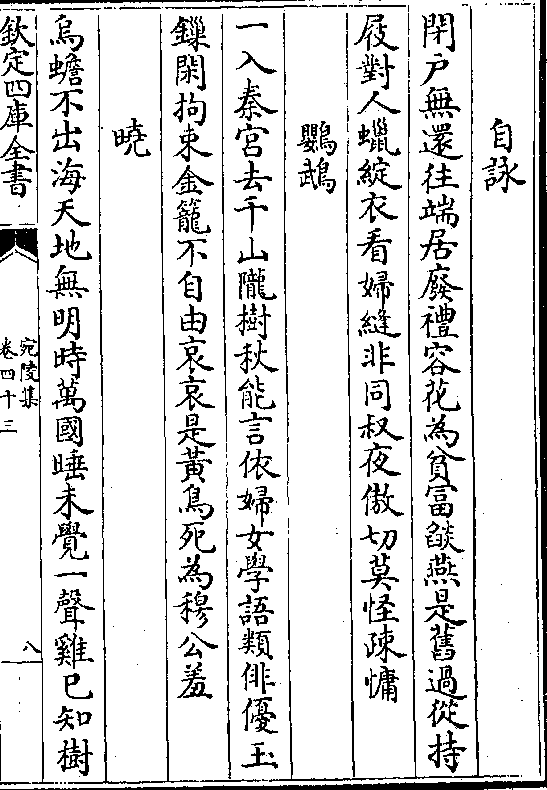 自詠
閉戶無還往端居廢禮容花為貧富𦦨燕是舊過從持
屐對人蠟綻衣看婦縫非同叔夜傲切莫怪疎慵
鸚鵡
一入秦宮去千山隴樹秋能言依婦女學語類俳優玉
鏁閑拘束金籠不自由哀哀是黃鳥死為穆公羞
曉
烏蟾不出海天地無明時萬國睡未覺一聲雞已知樹
欽定四庫全書
宛陵集
卷四十三
八